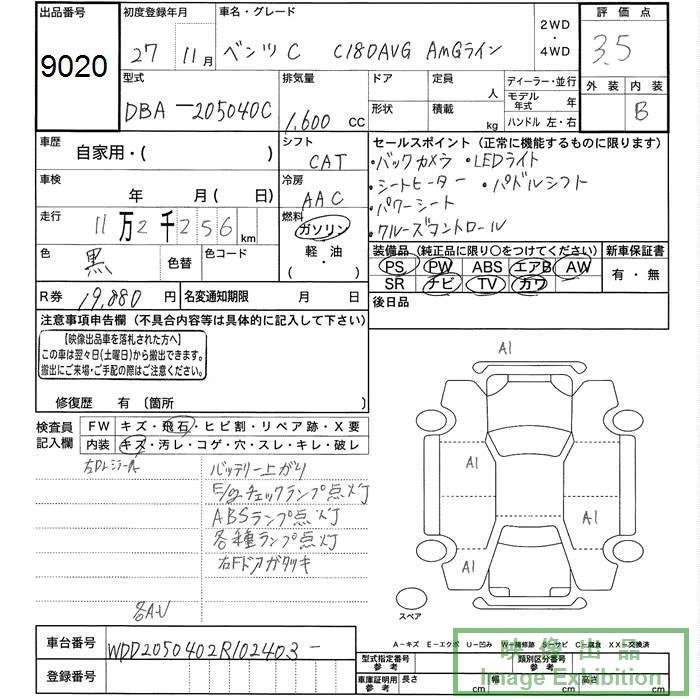 出品番号
9020
初度登録年月
27 年 11 月
車名・グレード
ベンツC C180AVG AMGライン
2WD
・
4WD
評価点
3.5
外装 内装
B
型式
DBA-205040C
排気量
1,600 cc
ドア
形状
定員
人
積載
kg
ディーラー・並行
モデル
年式 年
ハンドル 左・右
車歴
自家用・( )
シフト
CAT
セールスポイント(正常に機能するものに限ります)
・バックカメラ ・LEDライト
・シートヒーター ・パドルシフト
・パワーシート
・クルーズコントロール
車検
年 月( 日)
冷房
AAC
走行
11万2千256km
燃料
ガソリン
・
軽・油
( )
色
黒
色替
色コード
装備品(純正品に限り〇をつけてください)
PS PW ABS エアB AW
SR ナビ TV カワ
新車保証書
有・無
R券 19,880 円
名変通知期限 月 日
後日品
注意事項申告欄(不具合内容等は具体的に記入して下さい)
【映像出品車を落札された方へ】
この車は翌々日(土曜日)から搬出できます。
搬出にご来場・ご手配の際はご注意ください。
修復歴 有〔箇所 〕
検査員
記入欄
FW キズ・飛石・ヒビ割・リペア跡・X要
内装 キズ・汚レ・コゲ・穴・スレ・キレ・破レ
バッテリー上がり
チェックランプ点灯
ABSランプ点灯
各種ランプ点灯
右Fドアガタツキ
各AU
A1
A1
A1
A1
A1
スペア
A-キズ E-エクボ U-凹み W-補修跡 S-サビ C-腐食 XX-交換済
車台番号 WDD2050402R102403-
登録番号
型式指定番号
参考
類別区分番号
参考
車庫証明用
参考
長さ cm
幅 cm
高さ cm
映像出品
Image Exhibition